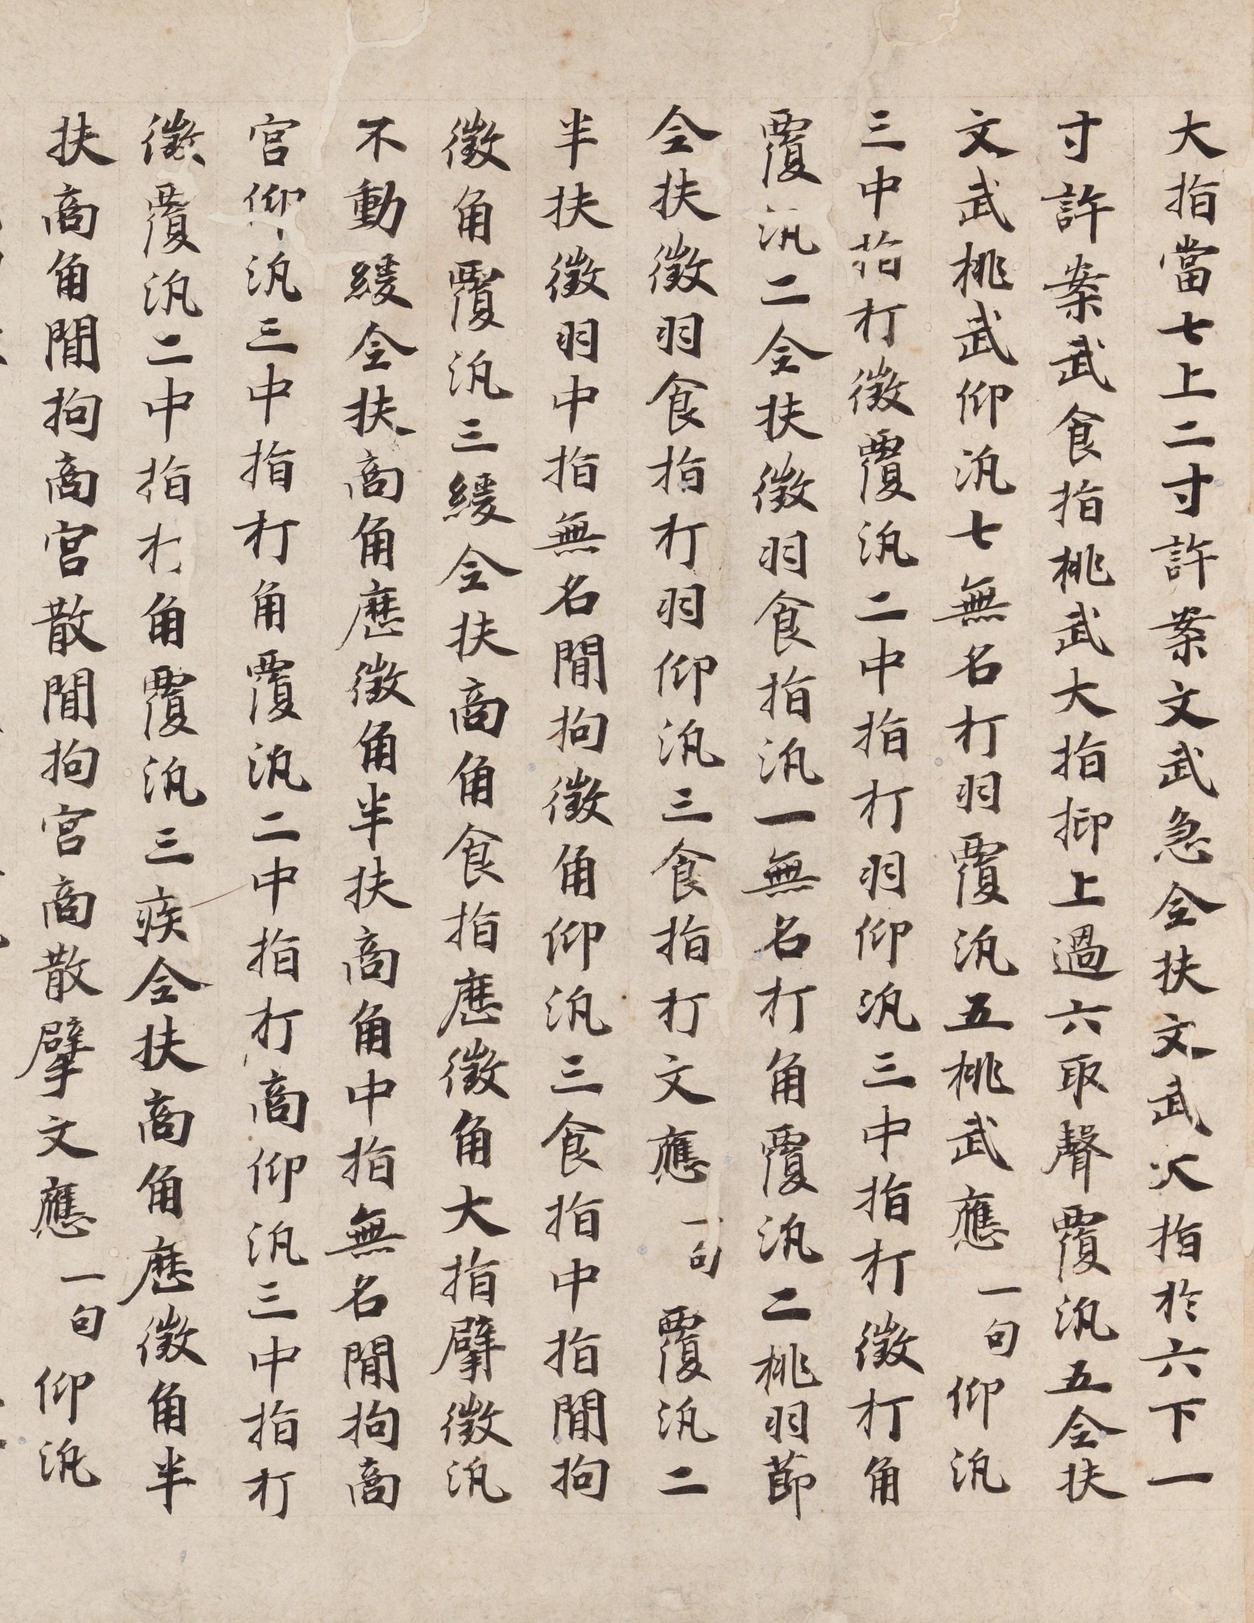 大指當七上二寸許案文武急全扶文武大指於六下一
寸許案武食指桃武大指抑上過六取聲覆汎五全扶
文武桃武仰汎七無名打羽覆汎五桃武應一句仰汎
三中指打徵覆汎二中指打羽仰汎三中指打徵打角
覆汎二全扶徵羽食指汎一無名打角覆汎二桃羽節
全扶徵羽食指打羽仰汎三食指打文應一句覆汎二
半扶徵羽中指無名間拘徵角仰汎三食指中指間拘
徵角覆汎三緩全扶商角食指應徵角大指擘徵汎
不動緩全扶商角應徵角半扶商角中指無名間拘商
宮仰汎三中指打角覆汎二中指打商仰汎三中指打
徵覆汎二中指打角覆汎三疾全扶商角應徵角半
扶商角間拘商宮散間拘宮商散擘文應一句仰汎